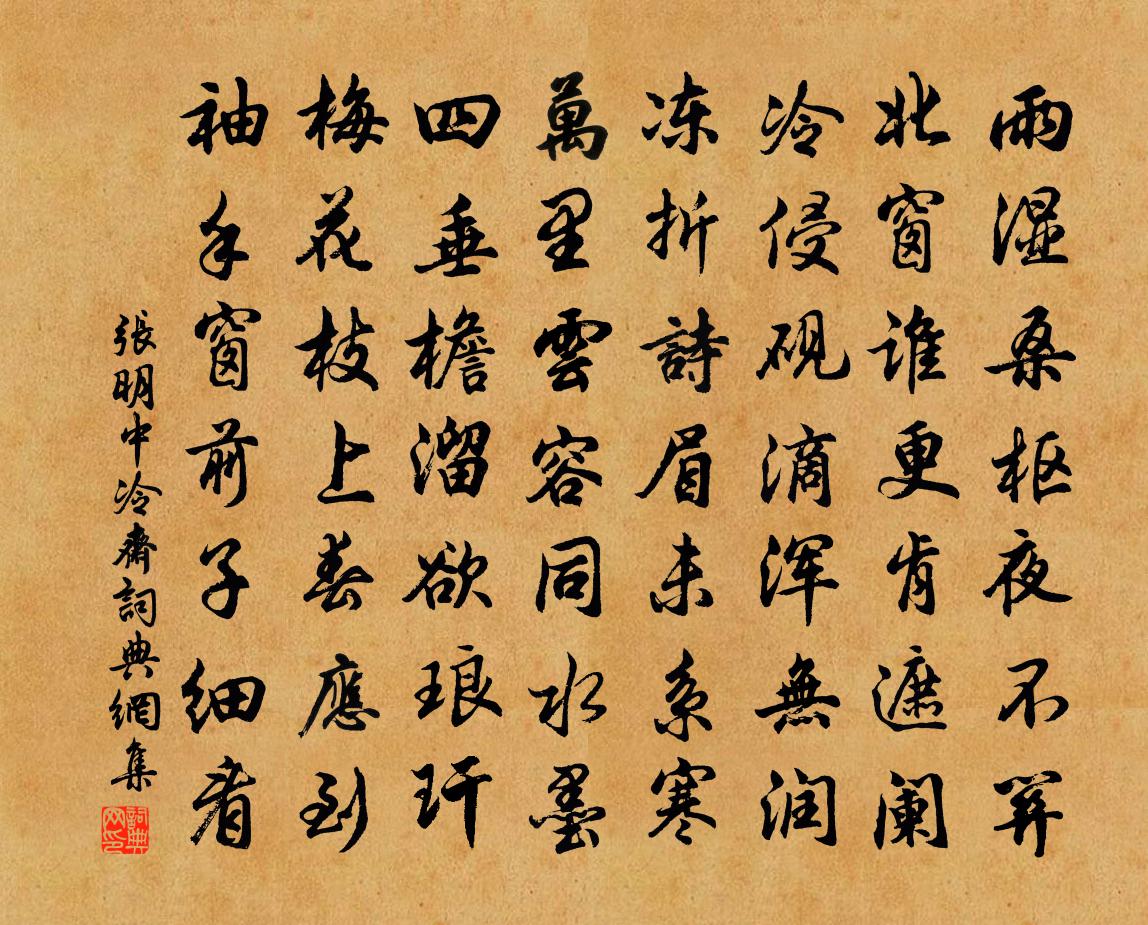 雨湿桑枢夜不关
北窗谁更肯遮阑
冷侵砚滴浑無润
冻折詩眉未系寒
萬里雲容同水墨
四垂檐溜欲琅玕
梅花枝上春應到
袖手窗前子细看
張明中冷齋詞典網集
詞典网印